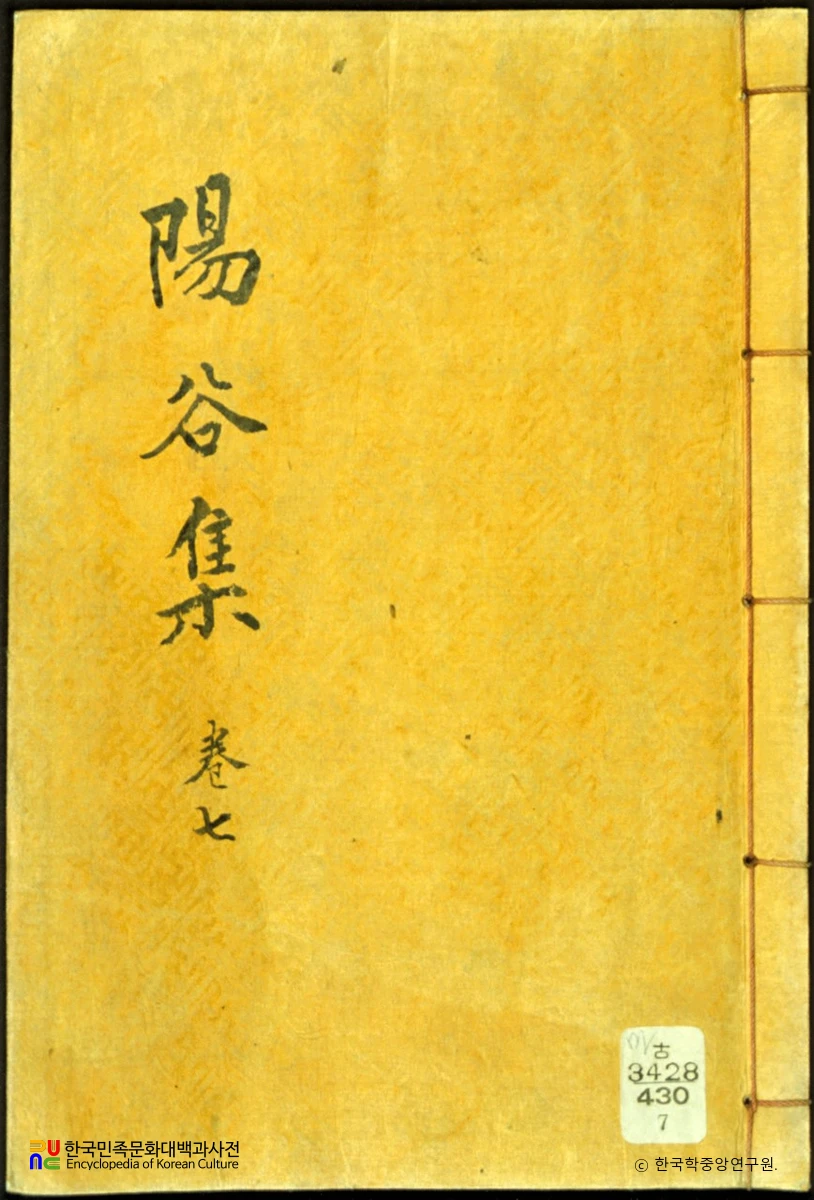 陽谷集
卷七
古
3428
430
7
한국민족문화대백과사전
Encyclopedia of Korean Culture
ⓒ 한국학중앙연구원.